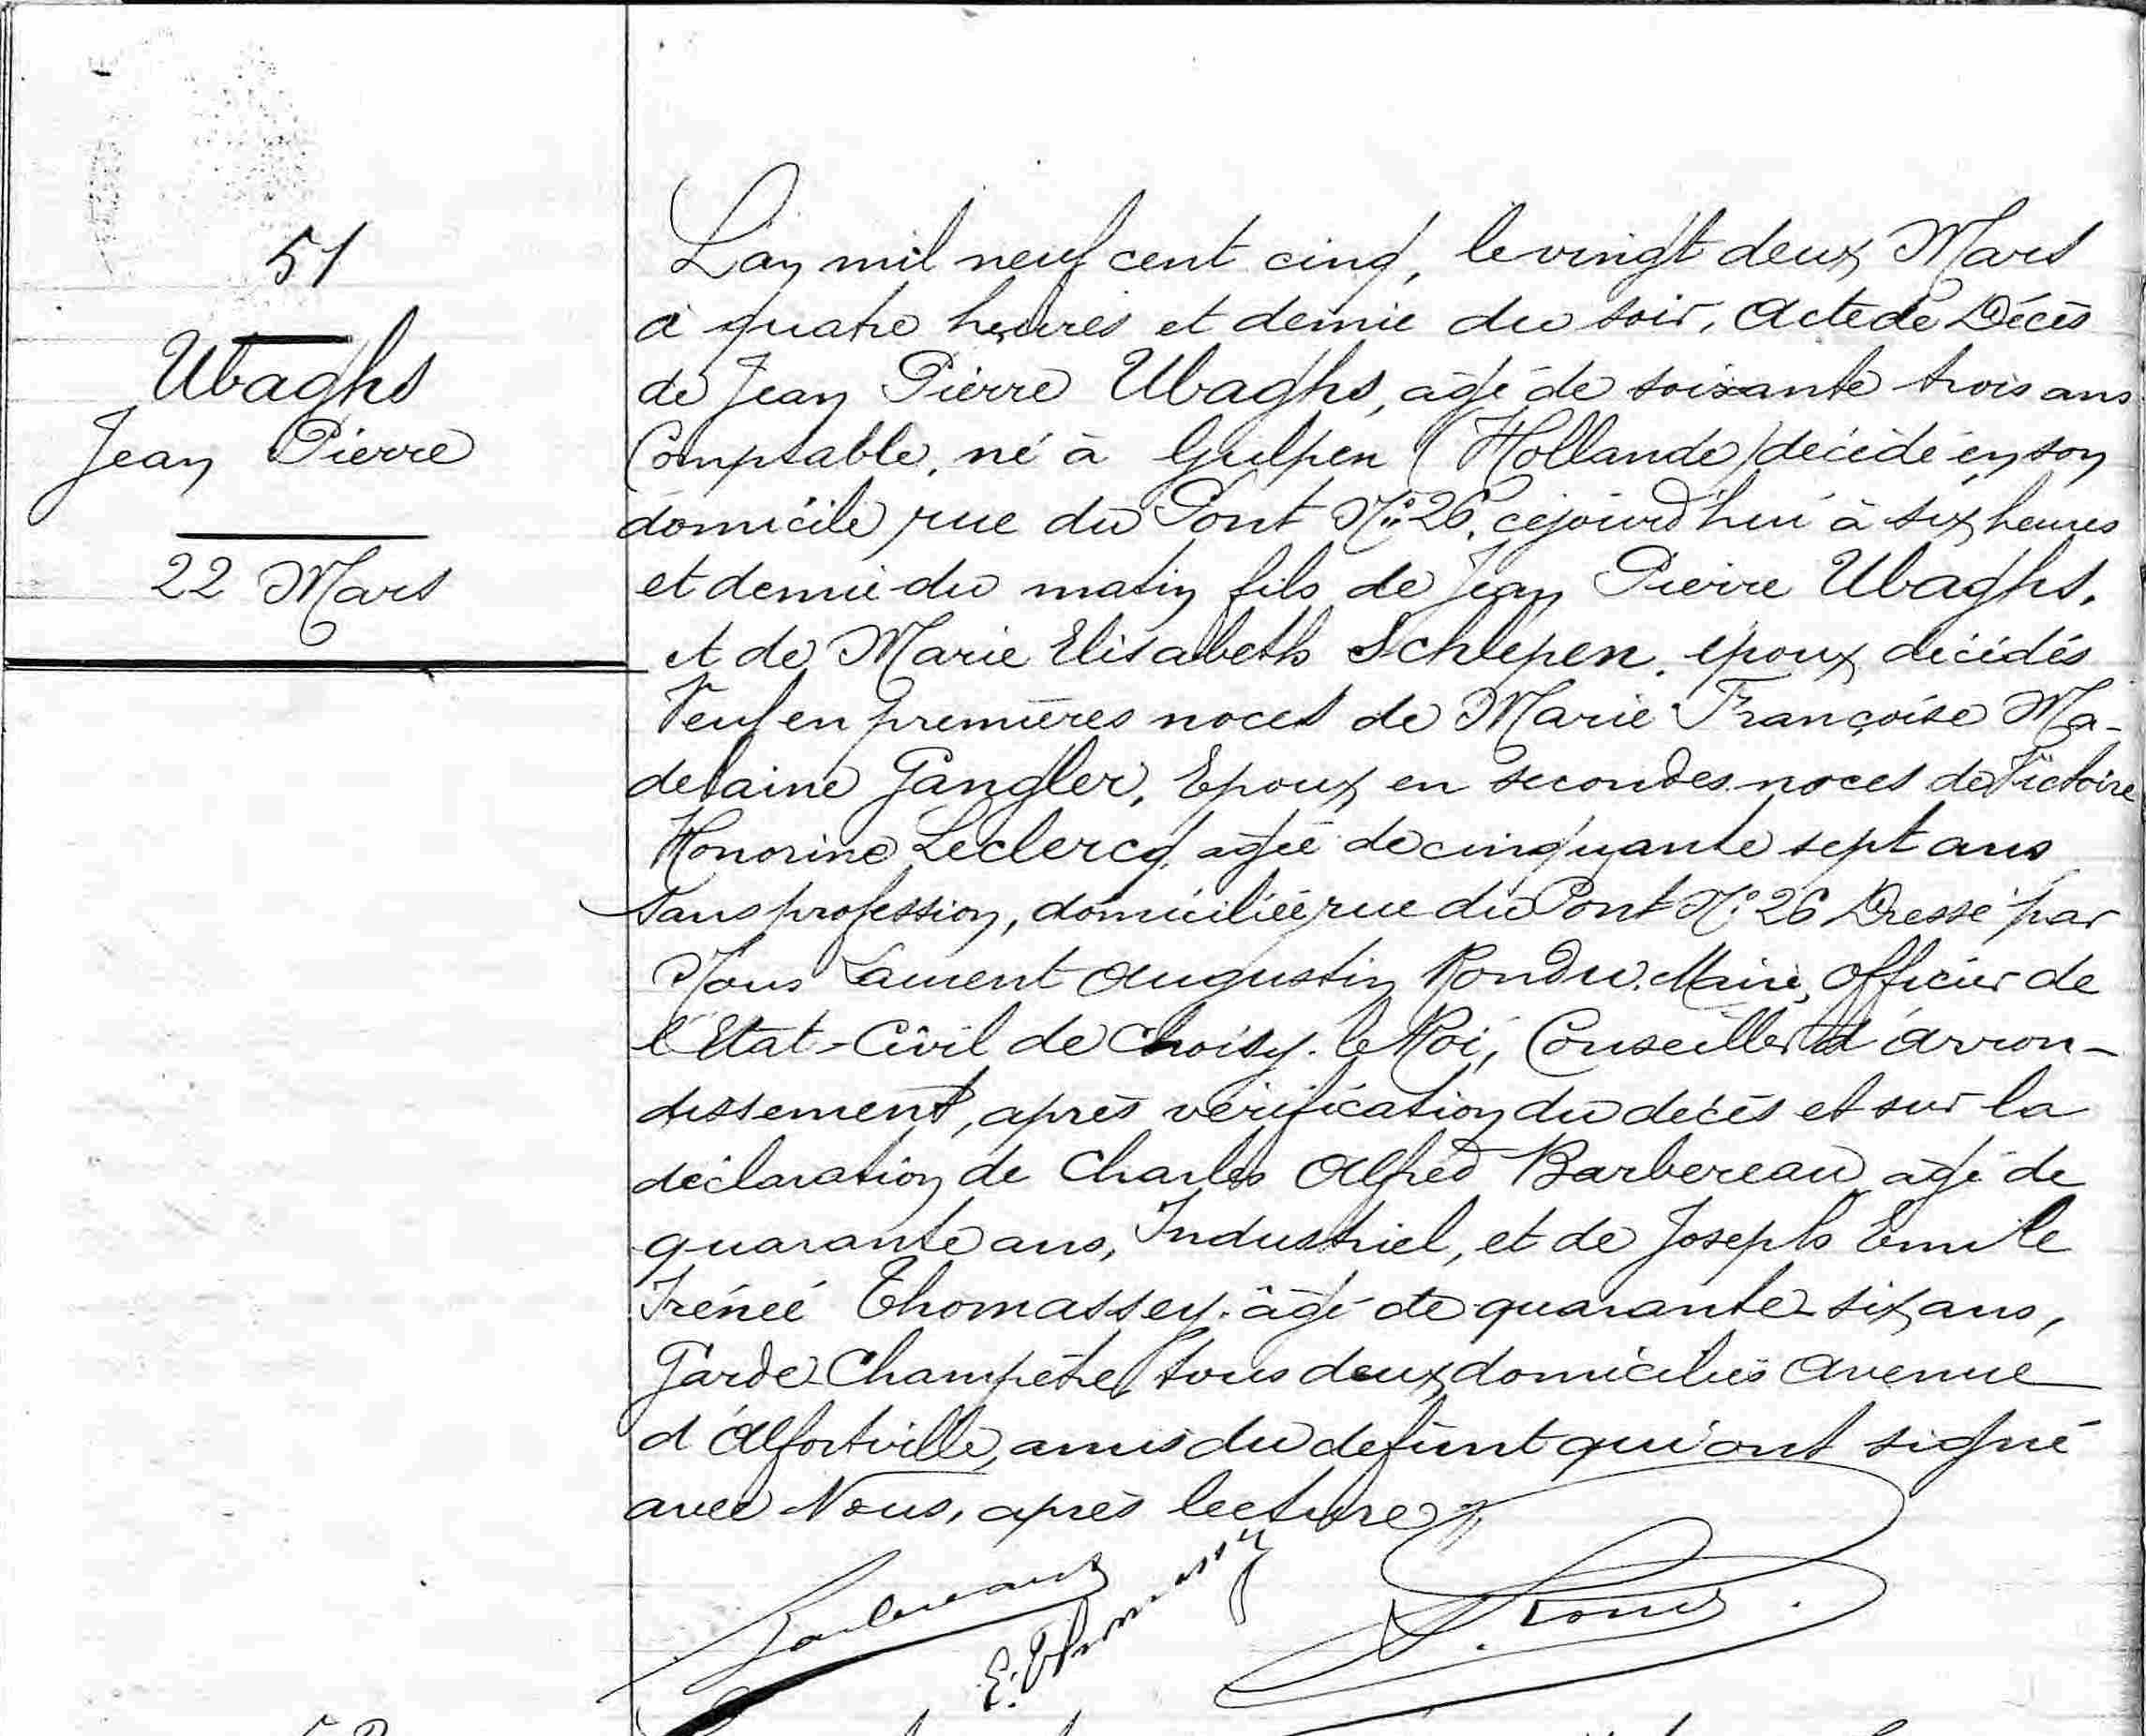 51
Ubaghs
Jean Pierre
22 Mars
L'an mil neuf cent cinq, le vingt deux Mars
à quatre heures et demie du soir, Acte de Décès
de Jean Pierre Ubaghs, âgé de soixante trois ans
Comptable, né à Gulpen (Hollande) décédé en son
domicile rue du Pont N° 26, cejourd'hui à six heures
et demie du matin fils de Jean Pierre Ubaghs,
et de Marie Elisabeth Schlepen, époux décédés
Veuf en premières noces de Marie Françoise Ma-
delaine Gangler, Epoux en secondes noces de Victoire
Honorine Leclercq, âgée de cinquante sept ans
sans profession, domiciliée rue du Pont N° 26 Dressé par
Nous Laurent Augustin Rondu, Maire, Officier de
l'Etat-Civil de Choisy-le-Roi, Conseiller d'arron-
dissement, après vérification du décès et sur la
déclaration de Charles Alfred Barbereau âgé de
quarante ans, Industriel, et de Joseph Emile
Irénée Thomassey, âgé de quarante six ans,
Garde Champêtre, tous deux domiciliés Avenue
d'Alfortville, amis du défunt qui ont signé
avec Nous, après lecture
E. Thomassey